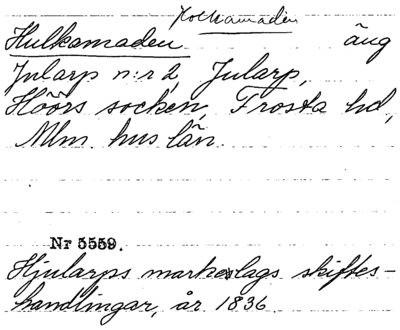 Holkamaden
Hulkamaden äng
Jularp n:r 2, Jularp,
Höörs socken, Frosta hd,
Mlm. hus län.
Nr 5559.
Hjularps markeslags skiftes-
handlingar, år 1836.